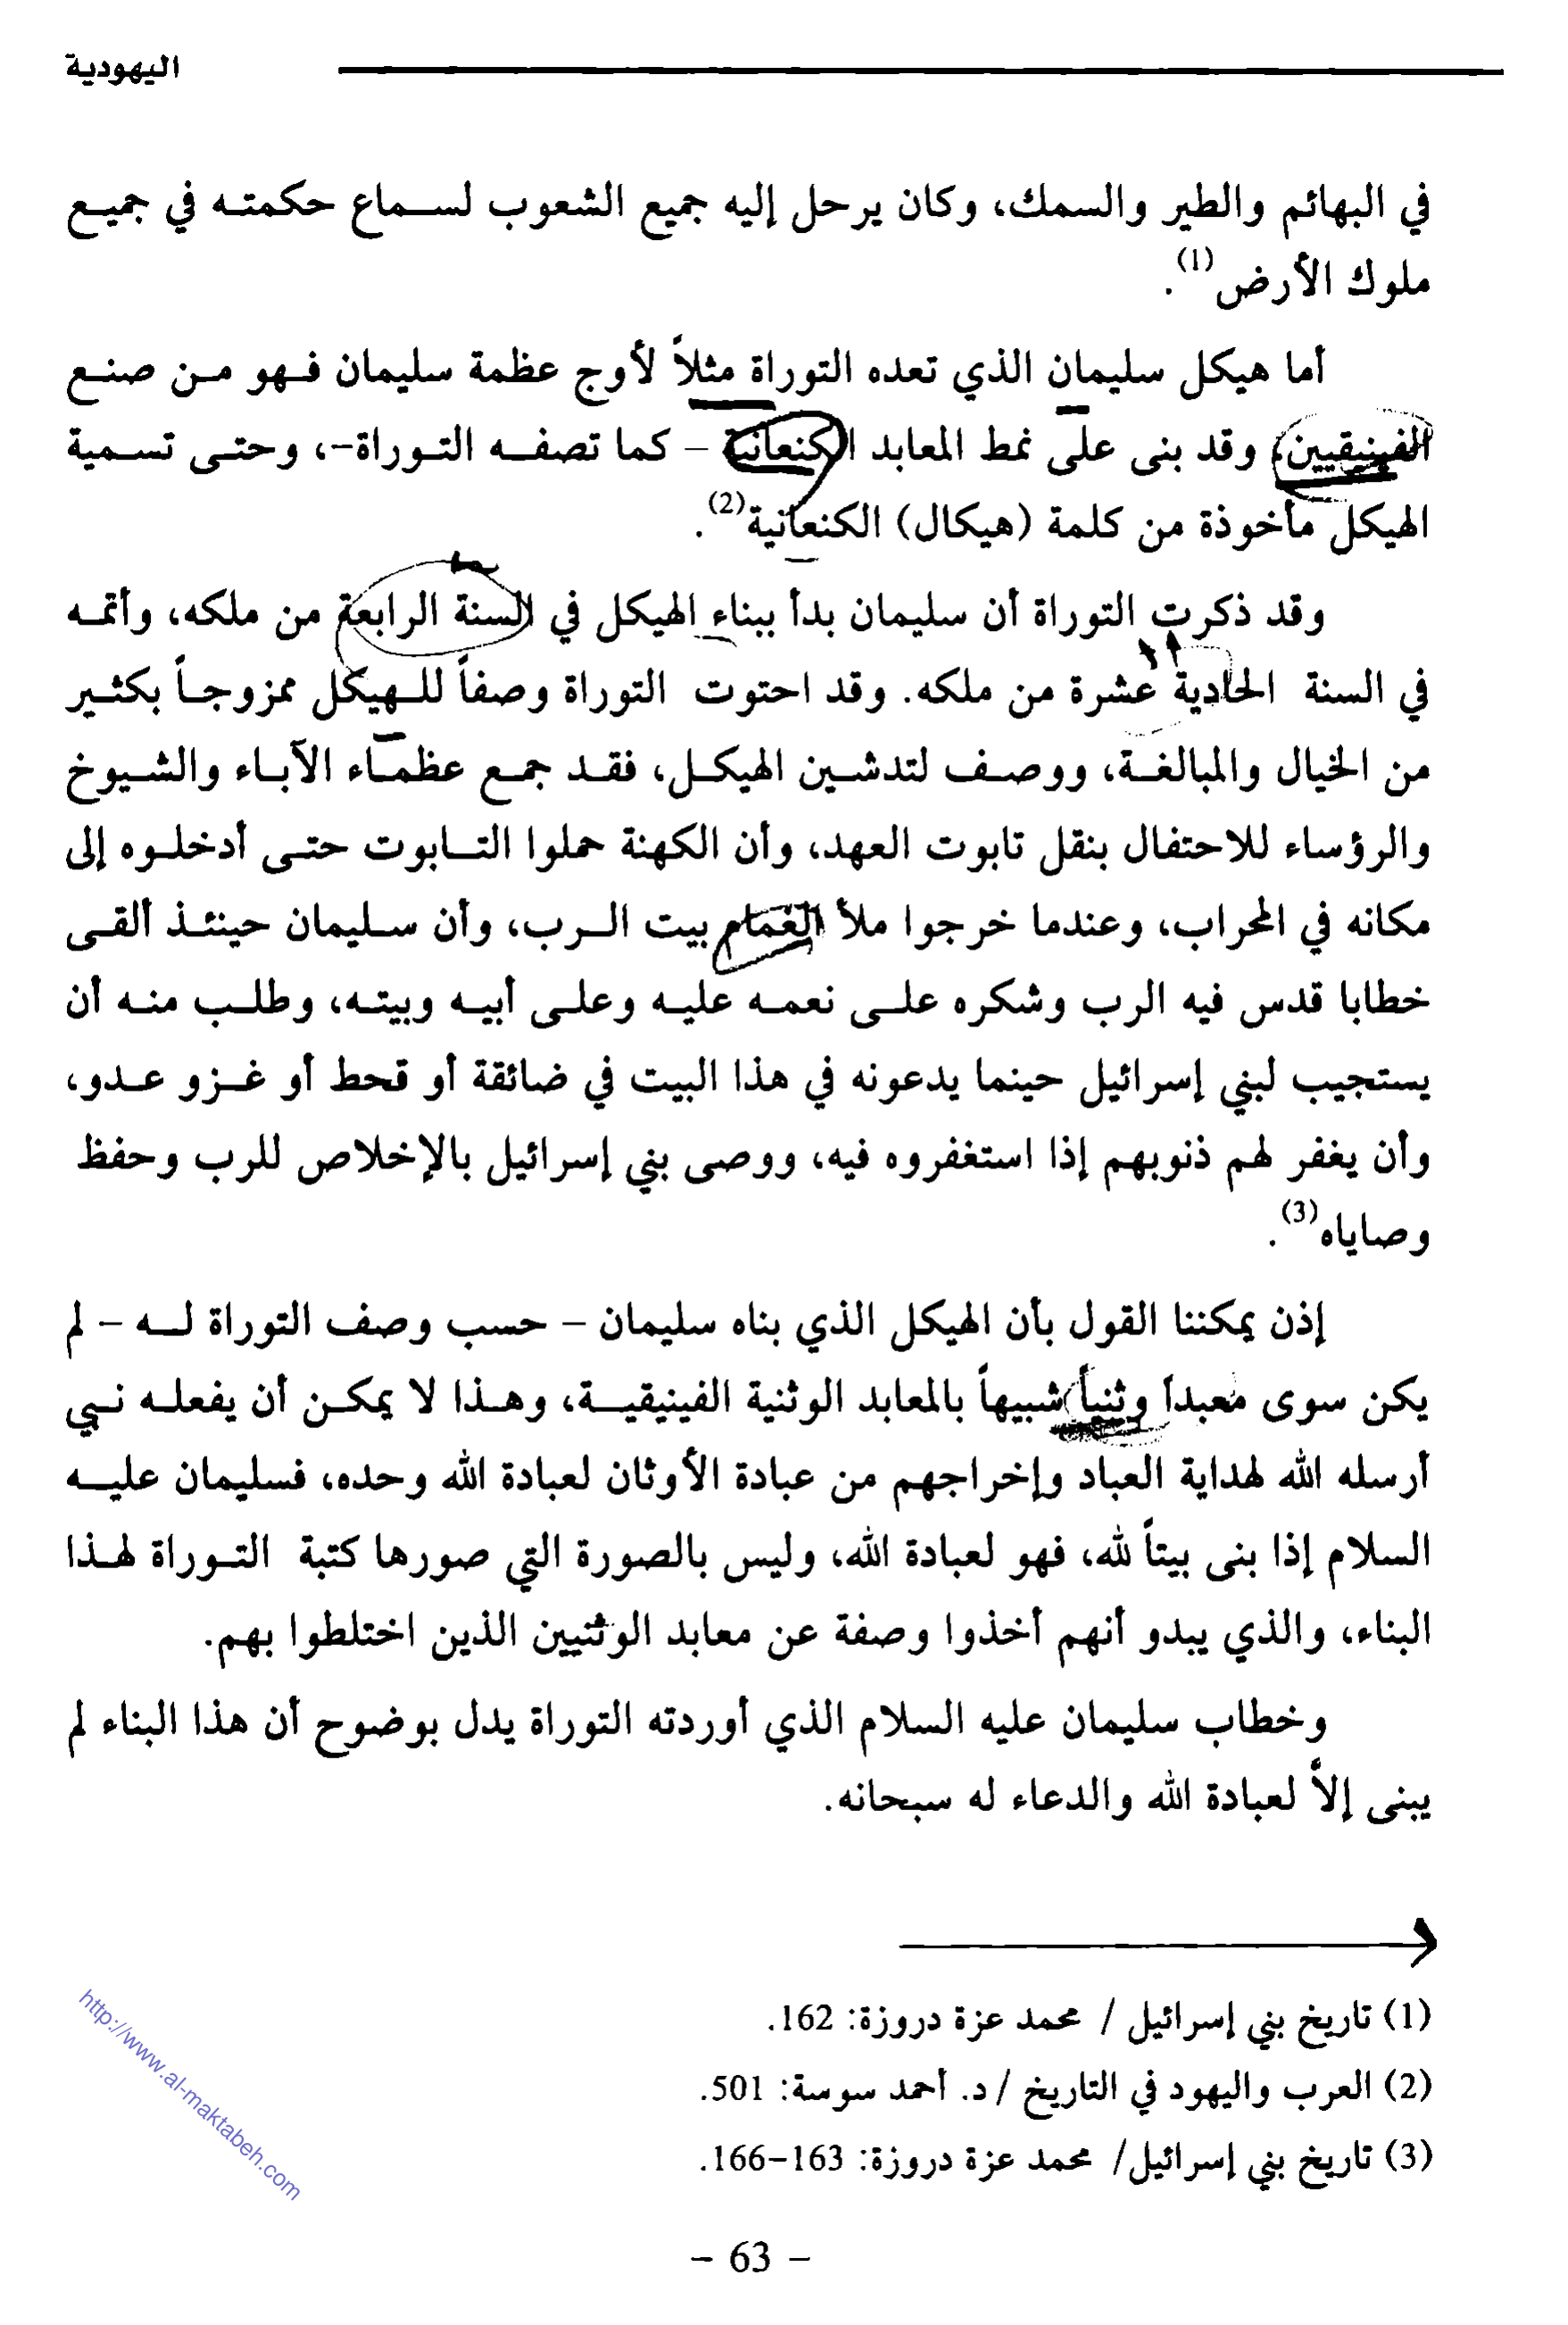 اليهودية
في البهائم والطير والسمك، وكان يرحل إليه جميع الشعوب لسماع حكمته في جميع
ملوك الأرض(1).
أما هيكل سليمان الذي تعده التوراة مثلاً لأوج عظمة سليمان فهو من صنع
الفينيقيين، وقد بنى على نمط المعابد الكنعانية – كما تصفه التوراة–، وحتى تسمية
الهيكل مأخوذة من كلمة (هيكال) الكنعانية(2).
وقد ذكرت التوراة أن سليمان بدأ ببناء الهيكل في السنة الرابعة من ملكه، وأتمه
في السنة الحادية عشرة من ملكه. وقد احتوت التوراة وصفاً للهيكل ممزوجاً بكثير
من الخيال والمبالغة، ووصف لتدشين الهيكل، فقد جمع عظماء الآباء والشيوخ
والرؤساء للاحتفال بنقل تابوت العهد، وأن الكهنة حملوا التابوت حتى أدخلوه إلى
مكانه في المحراب، وعندما خرجوا ملأ الغمام بيت الرب، وأن سليمان حينئذ ألقى
خطابا قدس فيه الرب وشكره على نعمه عليه وعلى أبيه وبيته، وطلب منه أن
يستجيب لبني إسرائيل حينما يدعونه في هذا البيت في ضائقة أو قحط أو غزو عدو،
وأن يغفر لهم ذنوبهم إذا استغفروه فيه، ووصى بني إسرائيل بالإخلاص للرب وحفظ
وصاياه(3).
إذن يمكننا القول بأن الهيكل الذي بناه سليمان – حسب وصف التوراة له – لم
يكن سوى معبداً وثنياً شبيهاً بالمعابد الوثنية الفينيقية، وهذا لا يمكن أن يفعله نبي
أرسله الله لهداية العباد وإخراجهم من عبادة الأوثان لعبادة الله وحده، فسليمان عليه
السلام إذا بنى بيتاً لله، فهو لعبادة الله، وليس بالصورة التي صورها كتبة التوراة لهذا
البناء، والذي يبدو أنهم أخذوا وصفة عن معابد الوثنيين الذين اختلطوا بهم.
وخطاب سليمان عليه السلام الذي أوردته التوراة يدل بوضوح أن هذا البناء لم
يبنى إلاَّ لعبادة الله والدعاء له سبحانه.
(1) تاريخ بني إسرائيل / محمد عزة دروزة: 162.
(2) العرب واليهود في التاريخ / د. أحمد سوسة: 501.
(3) تاريخ بني إسرائيل/ محمد عزة دروزة: 163–166.
http://www.al-maktabeh.com
– 63 –